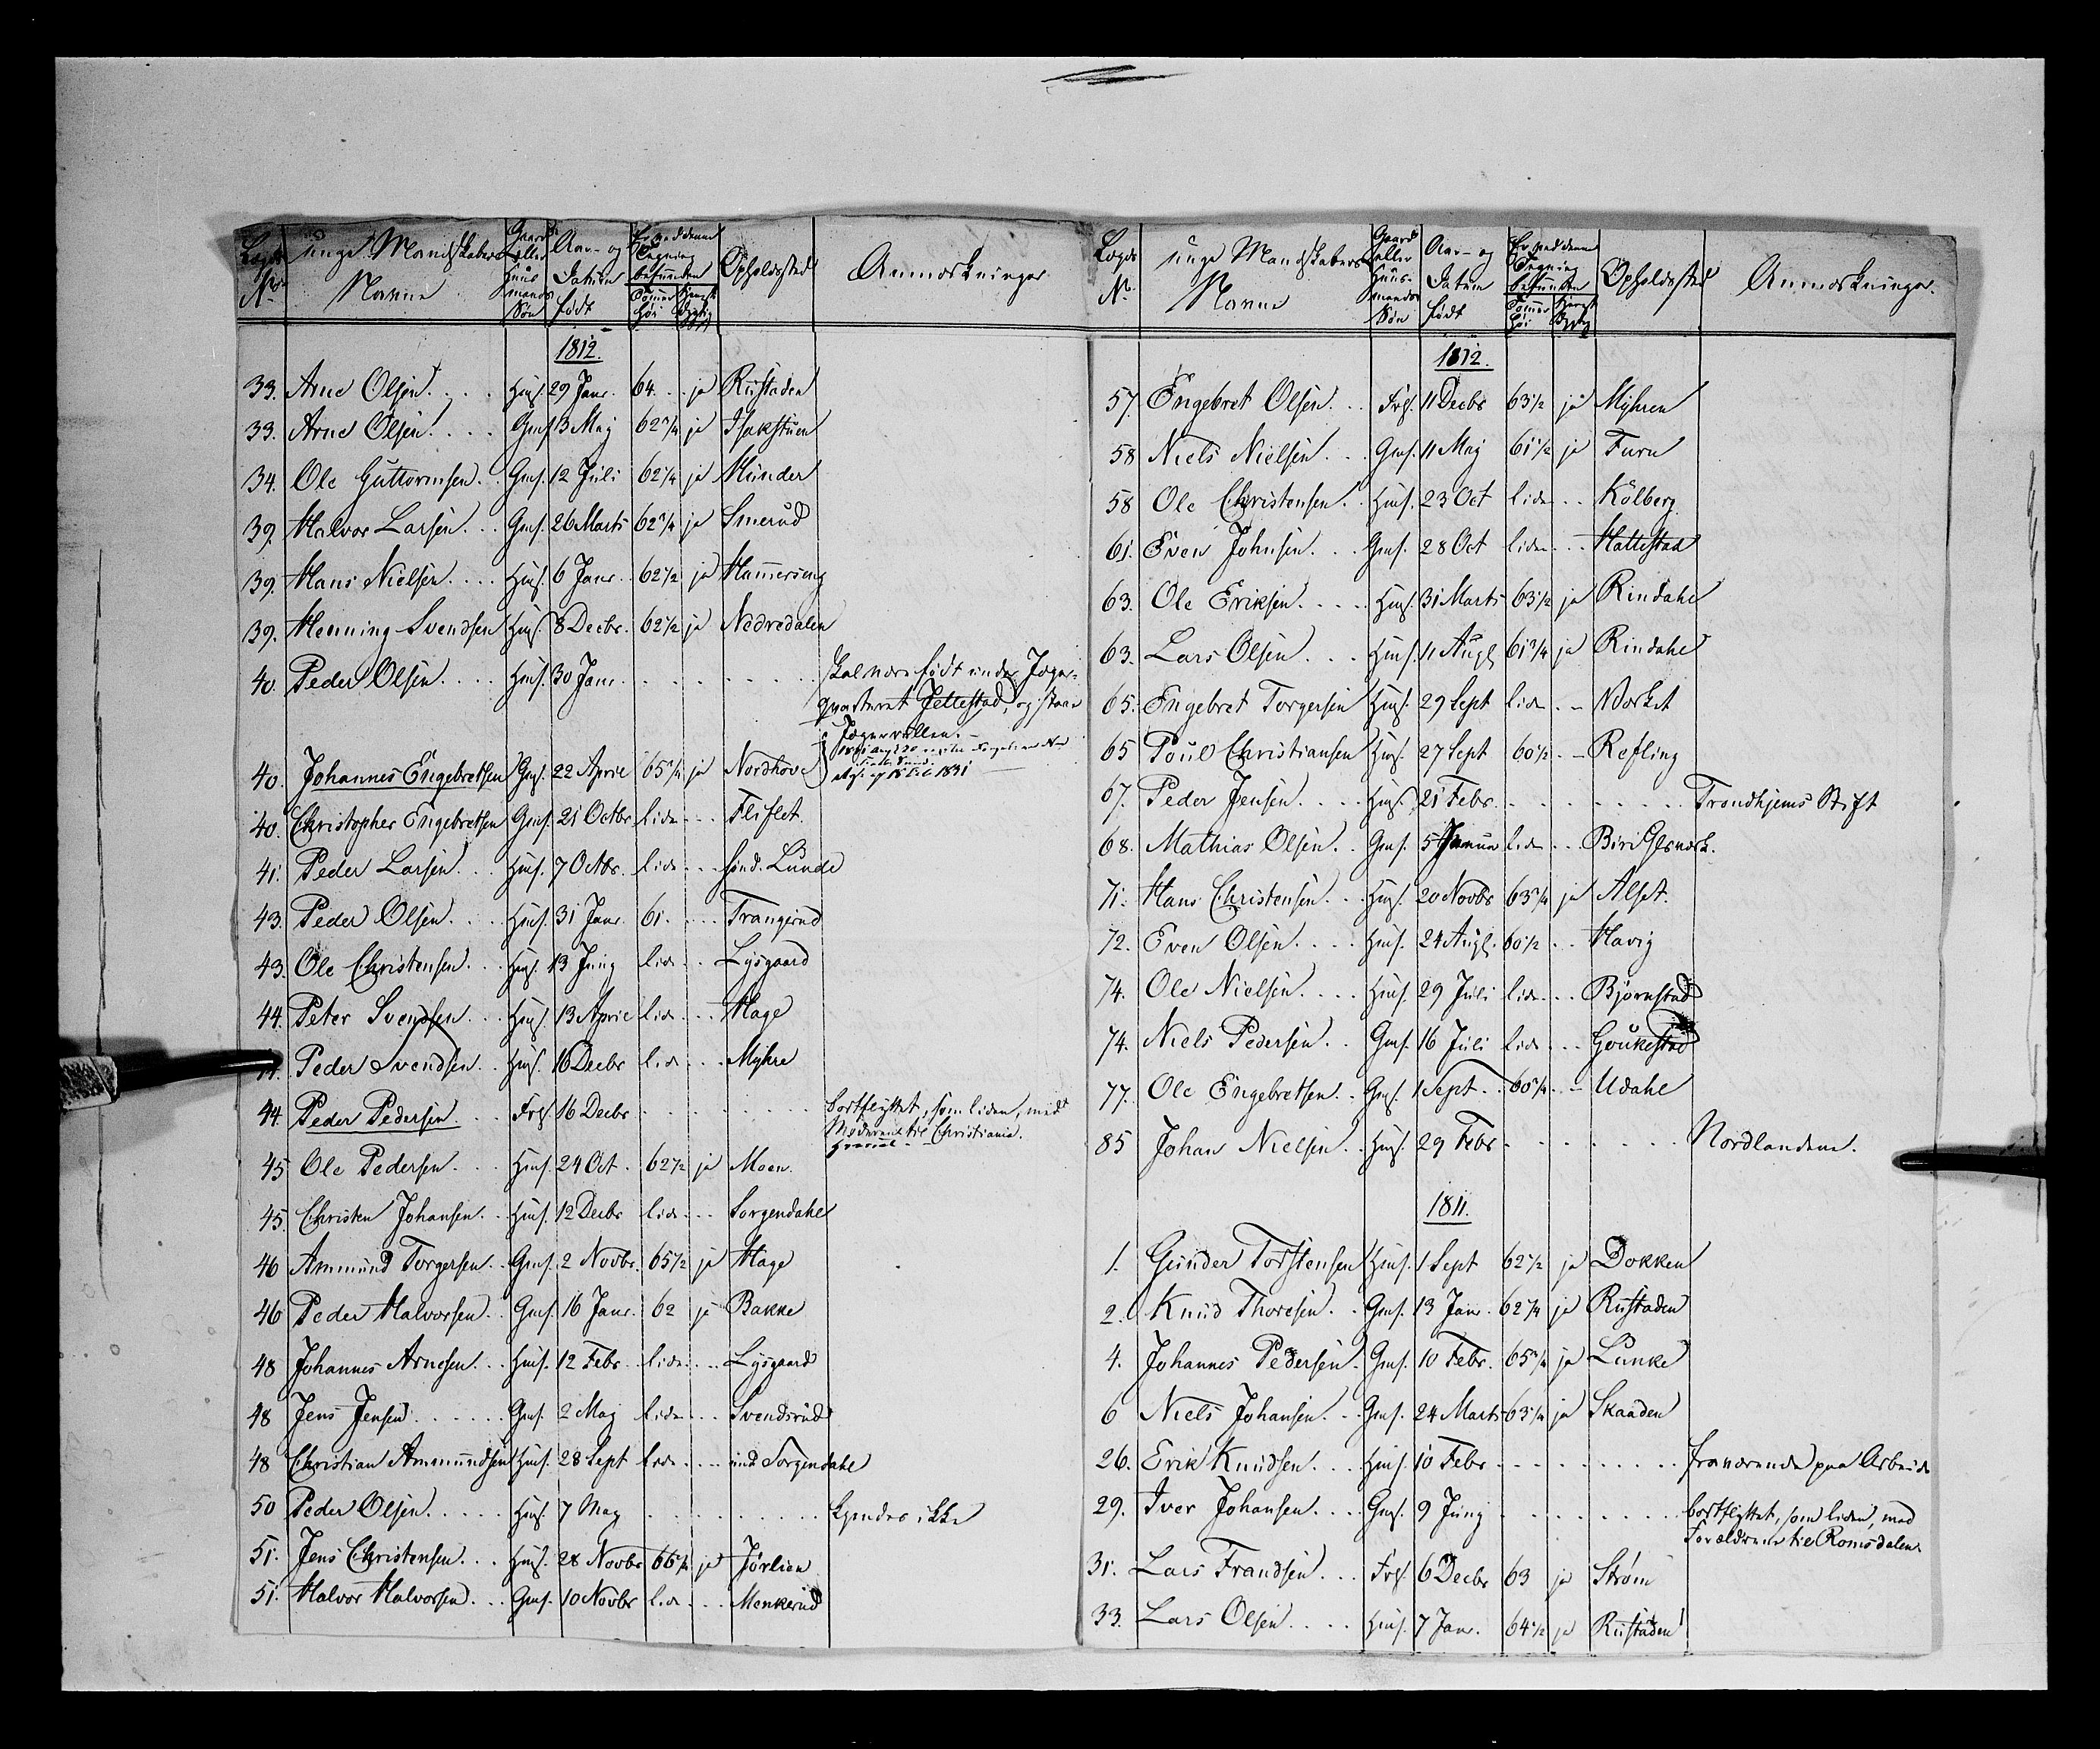 Lægds N°
unge Mandskabers Navne
Gaard eller Huus mands Søn
Aar- og Datum født
Er ved denne Tegning befunden
Tommer høi
Opholdssted
Anmærkninger
1812.
33. Arne Olsen. Hus. 29 Janr. 64. ja Rustaden
33. Arne Olsen. Gms. 3 May 62 1/4 ja Isakstuen
34. Ole Guttormsen. Gms. 12 Juli 62 1/4 ja Kunder
39. Halvor Larsen. Gms. 26 Marts 62 1/4 ja Smerud
39. Hans Nielsen. Hus. 6 Janr. 62 1/2 ja Hammerseng
39. Henning Svendsen Hus. 8 Decbr. 62 1/2 ja Nedredalen
40. Peder Olsen. Hus. 30 Janr. Skal være født under Jæger-
qvarteret Jellestad, og staaer
Jægerrullen.
40. Johannes Engebretsen Gms. 22 April 65 1/4 ja Nordhove
af 18 Feb 1831
40. Christopher Engebretsen Gms. 21 Octbr liden Fliflet.
41. Peder Larsen. Hus. 7 Octbr. liden sönd. Lunde
43. Peder Olsen. Hus. 31 Janr. 61. Trangerud
43. Ole Christensen. Hus. 13 Juny liden Lysgaard
44. Peter Svendsen. Hus. 13 April liden Hage
44. Peder Svendsen. Hus. 16 Decbr liden Myhre
44. Peder Pedersen. Frs. 16 Decbr bortflyttet, som liden, med
Moderen til Christiania.
45 Ole Pedersen. Hus. 24 Oct. 62 1/2 ja Moen.
45. Christen Johansen. Hus. 12 Decbr liden Sorgendahl
46 Ammund Torgersen. Gms. 2 Novbr. 65 1/2 ja Hage
46 Peder Halvorsen. Gms. 16 Janr. 62 ja Bakke
48 Johannes Arnesen. Hus. 12 Febr. liden Lysgaard
48 Jens Jensen. Gms. 2 May liden Svendsrud
48 Christian Ammundsen Hus. 28 Sept liden und Sorgendahl
50 Peder Olsen. Hus. 7 May kjendes ikke
51. Jens Christensen. Hus. 28 Novbr 66 1/4 ja Jørlien
51. Halvor Halvorsen. Gms. 10 Novbr liden Menkerud
Lægds N°
unge Mandskabers Navne
Gaard eller Huus- mands Søn
Aar- og Datum født
Er ved denne Tegning befunden
Tommer høi
Opholdssted
Anmærkninger.
1812.
57 Engebret Olsen. Frs. 11 Decbr 63 1/2 ja Myhren
58 Niels Nielsen. Gms. 11 May 61 1/2 ja Furu
58 Ole Christensen. Hus. 23 Oct liden Kölberg
61. Even Johnsen. Gms. 28 Oct liden Hallestad
63. Ole Eriksen. Hus. 31 Marts 63 1/2 ja Rindahl
63. Lars Olsen. Hus. 11 Augs 61 3/4 ja Rindahl
65. Engebret Torgersen Hus. 29 Sept liden Værket
65 Poul Christiansen Hus. 27 Sept 60 1/2 Refling
67. Peder Jensen. Hus. 21 Febr. Trondhjems Stift
68. Mathias Olsen. Gms. 5 Januar liden Biri Glasværk.
71. Hans Christensen. Hus. 20 Novbr 63 1/4 ja Alset.
72. Even Olsen. Hus. 24 Augs. 60 1/2 Havig
74. Ole Nielsen. Hus. 29 Juli liden Bjørnstad
74. Niels Pedersen. Gms. 16 Juli liden Goukestad
77. Ole Engebretsen. Gms. 1 Sept. 60 1/4 Udahl
85 Johan Nielsen. Hus. 29 Febr Nordlandene.
1811.
1. Gunder Torstensen Hus. 1 Sept 62 1/2 ja Dokken
2. Knud Thoresen. Gms. 13 Janr. 62 1/4 ja Rustaden
4. Johannes Pedersen. Gms. 10 Febr. 65 1/4 ja Lunke
6 Niels Johansen. Gms. 24 Marts 63 1/4 ja Skaaden
26. Erik Knudsen. Hus. 10 Febr fraværende paa Arbeide
29. Iver Johansen. Gms. 9 Juny bortflyttet, som liden, med
Forældrene til Romsdalen
31. Lars Frandsen. Frs. 6 Decbr 63 ja Strøm
33. Lars Olsen. Hus. 7 Janr. 64 1/2 ja Rustaden